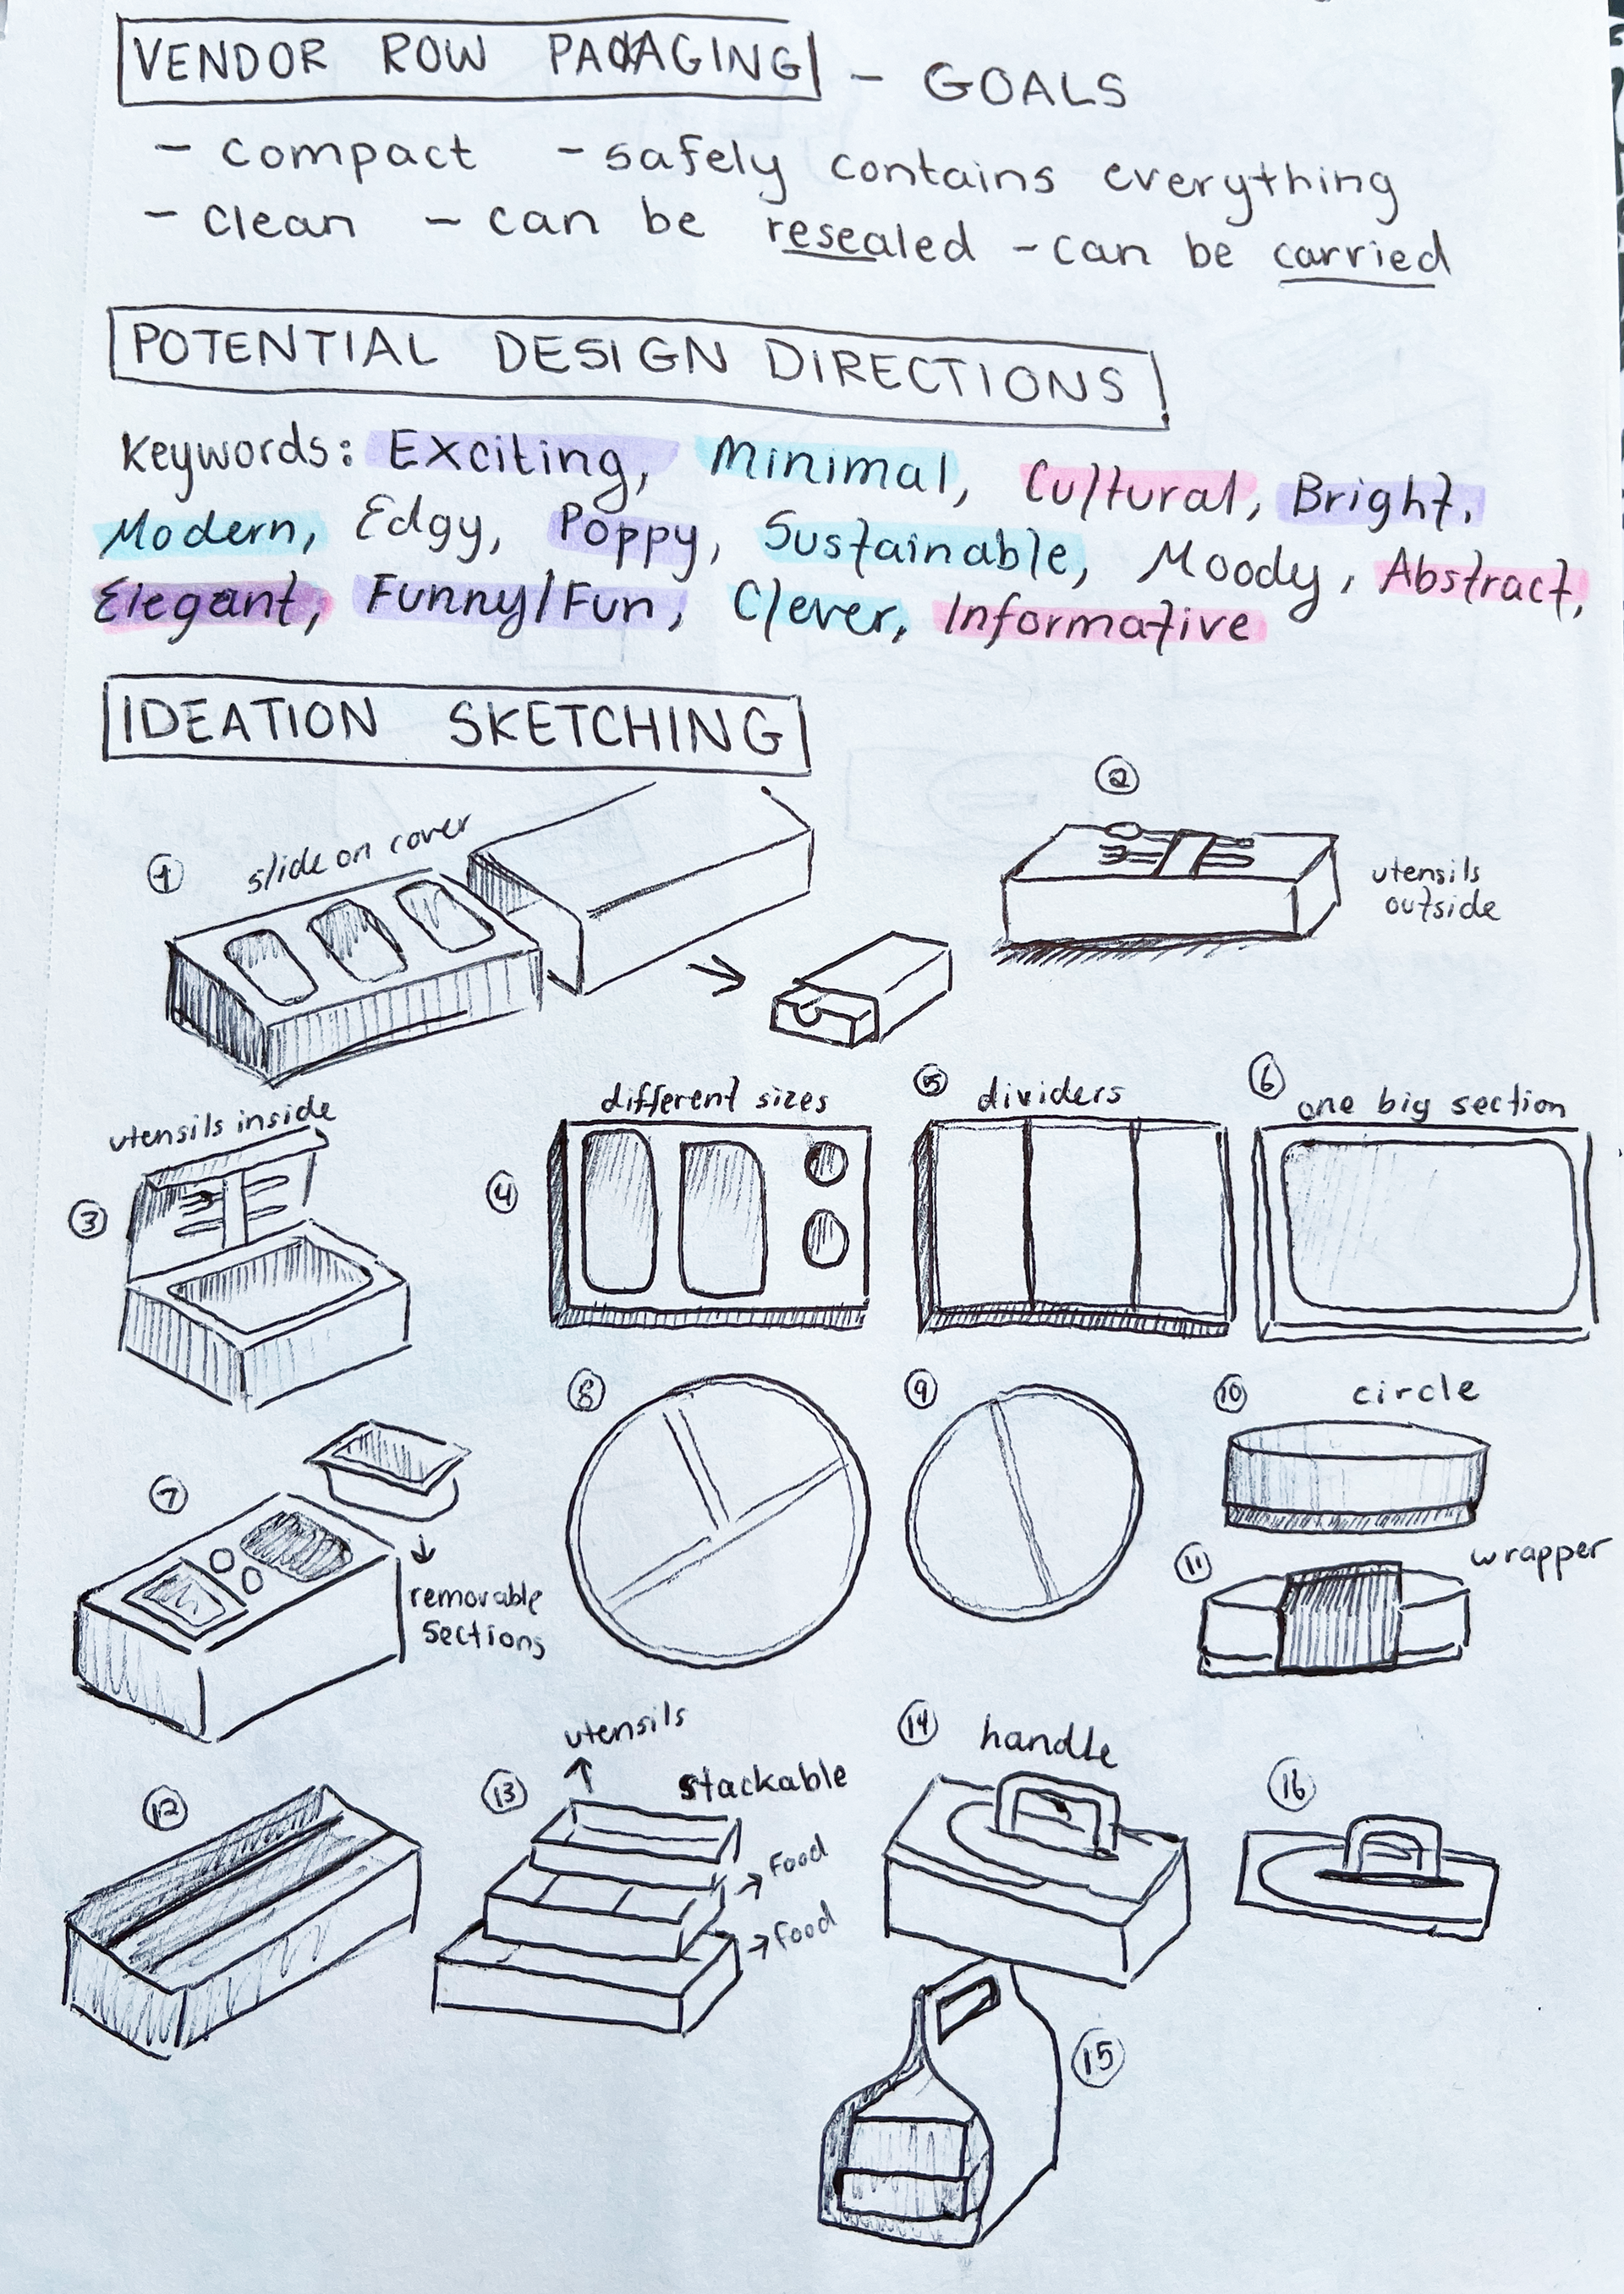 VENDOR ROW PACKAGING - GOALS
- compact - safely contains everything
- clean - can be resealed - can be carried
POTENTIAL DESIGN DIRECTIONS
Keywords: Exciting, Minimal, Cultural, Bright,
Modern, Edgy, Poppy, Sustainable, Moody, Abstract,
Elegant, Funny/Fun, Clever, Informative
IDEATION SKETCHING
1 slide on cover
2
utensils
outside
utensils inside
3
different sizes
4
5 dividers
6 one big section
7
removable
sections
8
9
10 circle
11 wrapper
12
utensils
13 stackable
→ Food
→ Food
14 handle
16
15